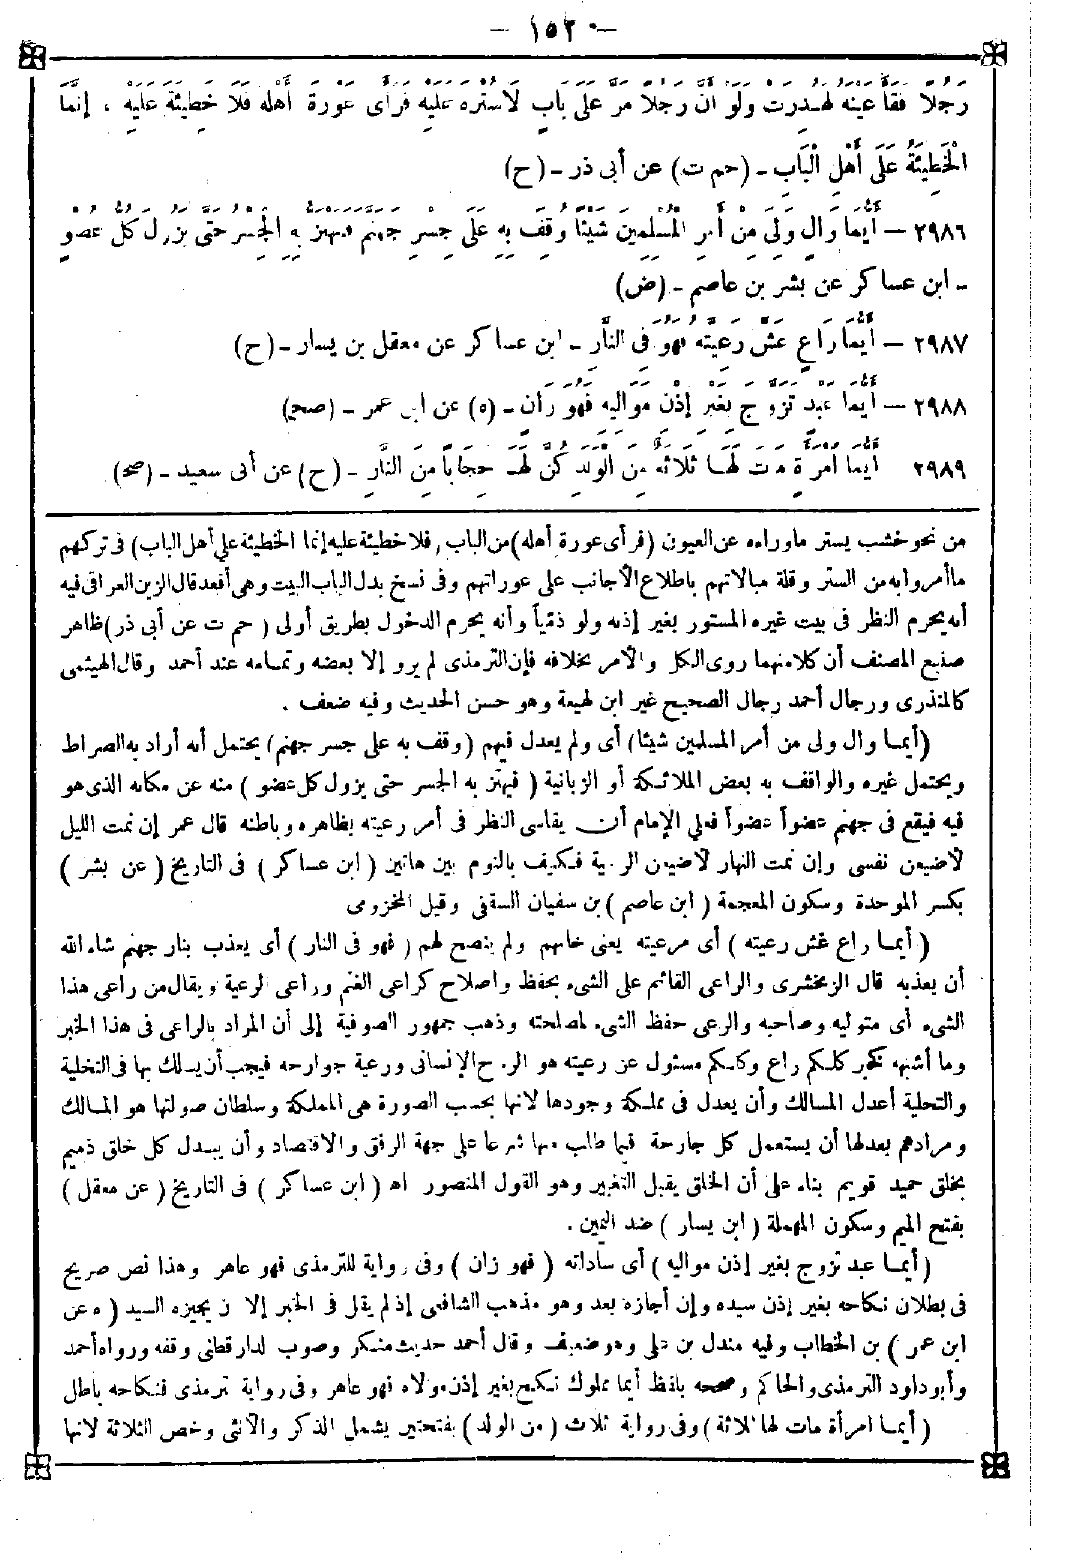 — ١٥٣ —
رَجُلاً فَقَأَ عينه لهدرت ولو أنَّ رجلاً مرَّ على باب لا ستره عليه فرأى عورة أهله فلا خطيئة عليه ، إنما
الْخَطِيئَةُ عَلَى أَهْلِ الْبَابِ ـ (حم ت) عن أبى ذر ـ (ح)
٢٩٨٦ — أَيُّمَا وَالٍ وَلِيَ مِنْ أَمْرِ الْمُسْلِمِينَ شَيْئًا وُقِفَ بِهِ عَلَى جِسْرِ جَهَنَّمَ فَيَهْتَزُّ بِهِ الْجِسْرُ حَتَّى يَزُولَ كُلُّ عُضْوٍ
ـ ابن عساكر عن بشر بن عاصم ـ (ض)
٢٩٨٧ — أَيُّمَا رَاعٍ غَشَّ رَعِيَّتَهُ فَهُوَ فِى النَّارِ ـ ابن عساكر عن معقل بن يسار ـ (ح)
٢٩٨٨ — أَيُّمَا عَبْدٍ تَزَوَّجَ بِغَيْرِ إِذْنِ مَوَالِيهِ فَهُوَ زَانٍ ـ (ه) عن ابن عمر ـ (صح)
٢٩٨٩ أَيُّمَا امْرَأَةٍ مَاتَ لَهَا ثَلَاثَةٌ مِنَ الْوَلَدِ كُنَّ لَهَا حِجَابًا مِنَ النَّارِ ـ (خ) عن أبى سعيد ـ (صح)
من نحو خشب يستر ماوراءه عن العيون (فرأى عورة أهله) من الباب ، فلا خطيئة عليه إنما الخطيئة على أهل الباب) فى تركهم
ما أمروا به من الستر وقلة مبالاتهم باطلاع الأجانب على عوراتهم وفى نسخ بدل الباب البيت وهى أقعد قال الزين العراقى فيه
أنه يحرم النظر فى بيت غيره المستور بغير إذنه ولو ذمياً وأنه يحرم الدخول بطريق أولى ( حم ت عن أبى ذر) ظاهر
صنيع المصنف أن كلا منهما روى الكل والأمر بخلافه فإن الترمذى لم يرو إلا بعضه وتمامه عند أحمد وقال الهيثمى
كالمنذرى ورجال أحمد رجال الصحيح غير ابن لهيعة وهو حسن الحديث وفيه ضعف .
(أيما وال ولى من أمر المسلمين شيئا) أى ولم يعدل فيهم (وقف به على جسر جهنم) يحتمل أنه أراد به الصراط
ويحتمل غيره والواقف به بعض الملائكة أو الزبانية ( فيهتز به الجسر حتى يزول كل عضو ) منه عن مكانه الذى هو
فيه فيقع فى جهنم عضواً عضواً فعلى الإمام أن يقاسى النظر فى أمر رعيته بظاهره وباطنه قال عمر إن نمت الليل
لأضيعن نفسى وإن نمت النهار لأضيعن الرعية فكيف بالنوم بين هاتين ( ابن عساكر ) فى التاريخ ( عن بشر )
بكسر الموحدة وسكون المعجمة ( ابن عاصم ) بن سفيان الثقفى وقيل المخزومى
( أيما راع غش رعيته ) أى مرعيته يعنى خانهم ولم ينصح لهم ( فهو فى النار ) أى يعذب بنار جهنم شاء الله
أن يعذبه قال الزمخشرى والراعى القائم على الشىء بحفظ وإصلاح كراعى الغنم وراعى الرعية ويقال من راعى هذا
الشىء أى متوليه وصاحبه والرعى حفظ الشىء لمصلحته وذهب جمهور الصوفية إلى أن المراد بالراعى فى هذا الخبر
وما أشبهه كخبر كلكم راع وكلكم مسئول عن رعيته هو الروح الإنسانى ورعية جوارحه فيجب أن يسلك بها فى التخلية
والتحلية أعدل المسالك وأن يعدل فى مملكة وجودها لأنها بحسب الصورة هى المملكة وسلطان صولتها هو المالك
ومرادهم بعدلها أن يستعمل كل جارحة فيما طلب منها شرعا على جهة الرفق والاقتصاد وأن يبدل كل خلق ذميم
بخلق حميد قويم بناء على أن الخلق يقبل التغيير وهو القول المنصور اه ( ابن عساكر ) فى التاريخ ( عن معقل )
بفتح الميم وسكون المهملة ( ابن يسار ) ضد اليمين .
( أيما عبد تزوج بغير إذن مواليه ) أى ساداته ( فهو زان ) وفى رواية للترمذى فهو عاهر وهذا نص صريح
فى بطلان نكاحه بغير إذن سيده وإن أجازه بعد وهو مذهب الشافعى إذ لم يقل فى الخبر إلا أن يجيزه السيد ( ه عن
ابن عمر ) بن الخطاب وفيه مندل بن على وهو ضعيف وقال أحمد حديث منكر وصوب الدارقطنى وقفه ورواه أحمد
وأبو داود الترمذى والحاكم وصححه بلفظ أيما مملوك نكح بغير إذن مولاه فهو عاهر وفى رواية ترمذى فنكاحه باطل
( أيما امرأة مات لها ثلاثة ) وفى رواية ثلاث ( من الولد ) بفتحتين يشمل الذكر والأنثى وخص الثلاثة لأنها